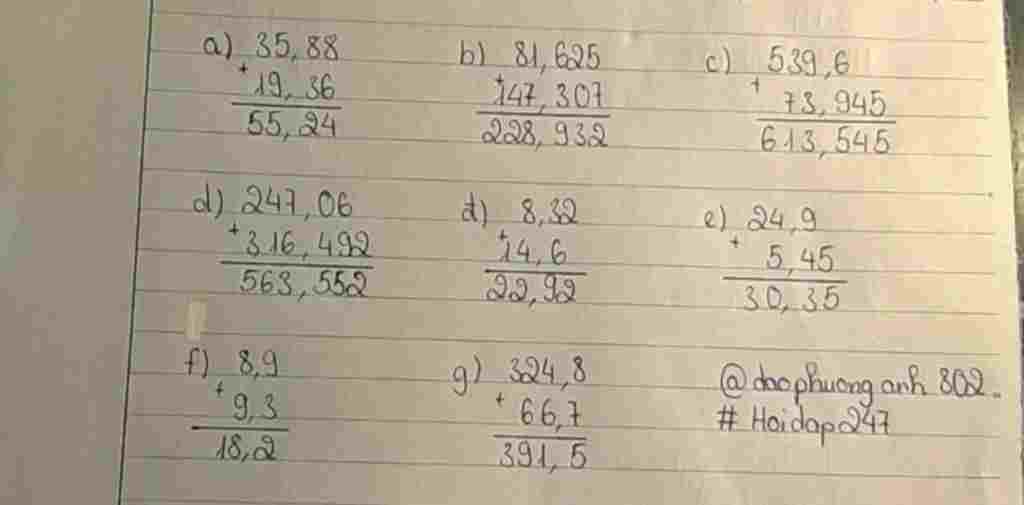 a) 35,88
+ 19,36
55,24
b) 81,625
+ 147,307
228,932
c) 539,6
+ 73,945
613,545
d) 247,06
+ 316,492
563,552
đ) 8,32
+ 14,6
22,92
e) 24,9
+ 5,45
30,35
f) 8,9
+ 9,3
18,2
g) 324,8
+ 66,7
391,5
@daophuonganh802.
# Hoidap247